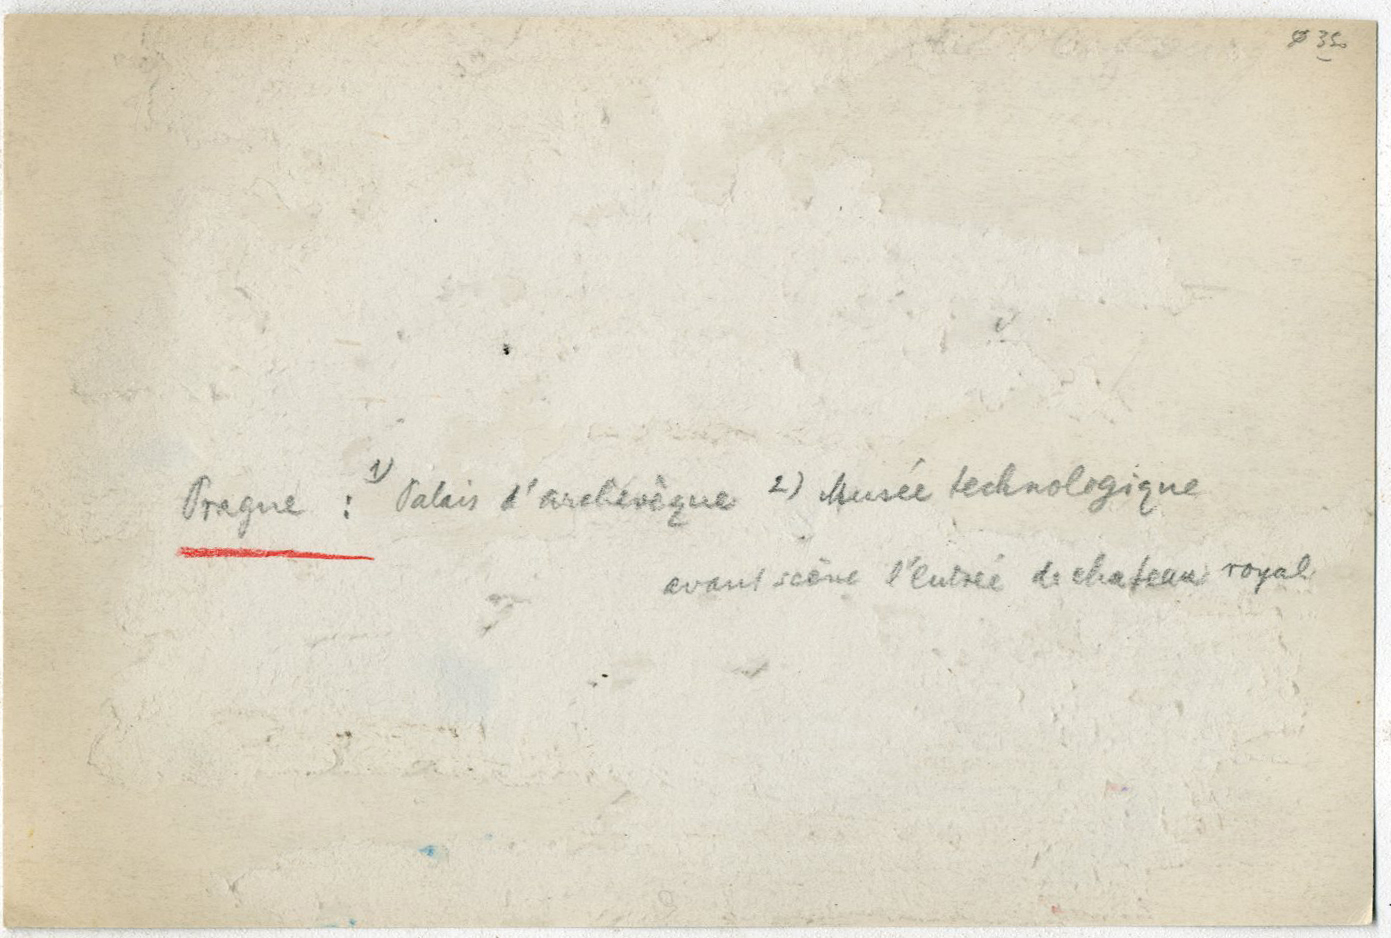 350
Prague : 1) Palais d'archévêque 2) Musée technologique
avant scène l'entrée de chateau royal